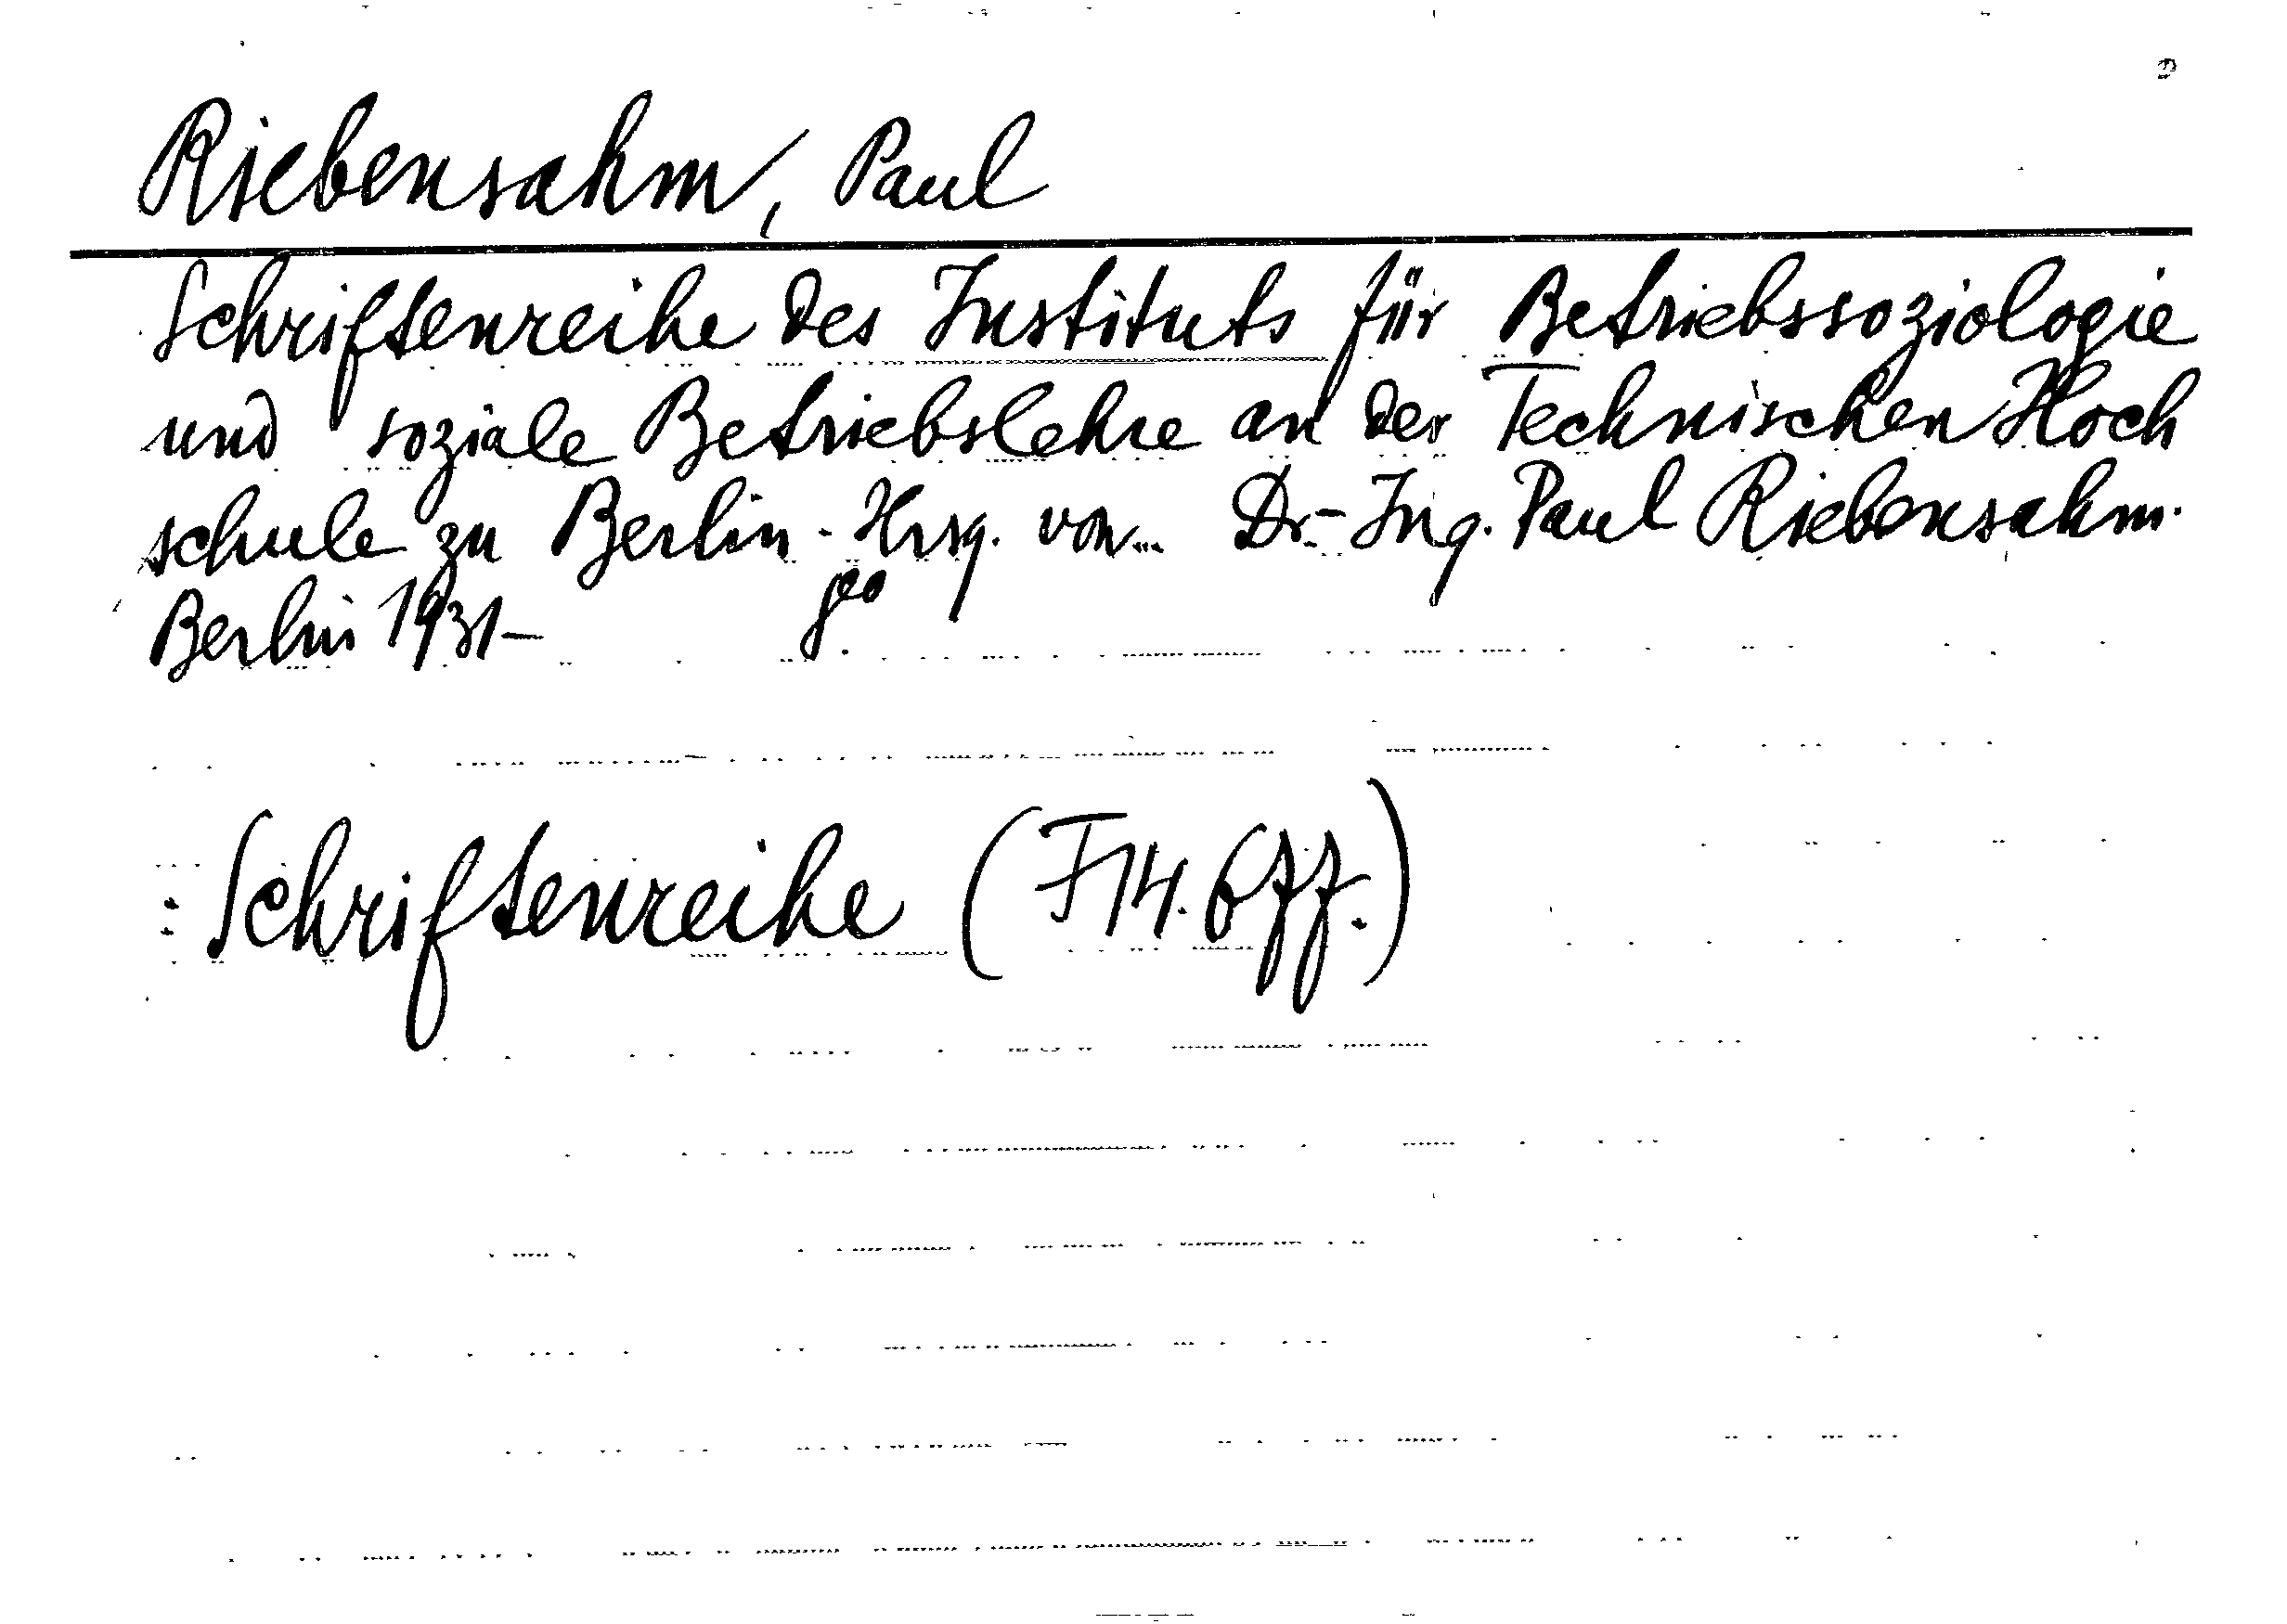 Riebensahm, Paul
Schriftenreihe des Instituts für Betriebssoziologie
und soziale Betriebslehre an der Technischen Hoch
schule zu Berlin. Hrsg. von... Dr.-Ing. Paul Riebensahm.
Berlin 1931-
Schriftenreihe (F 14. 6ff.)